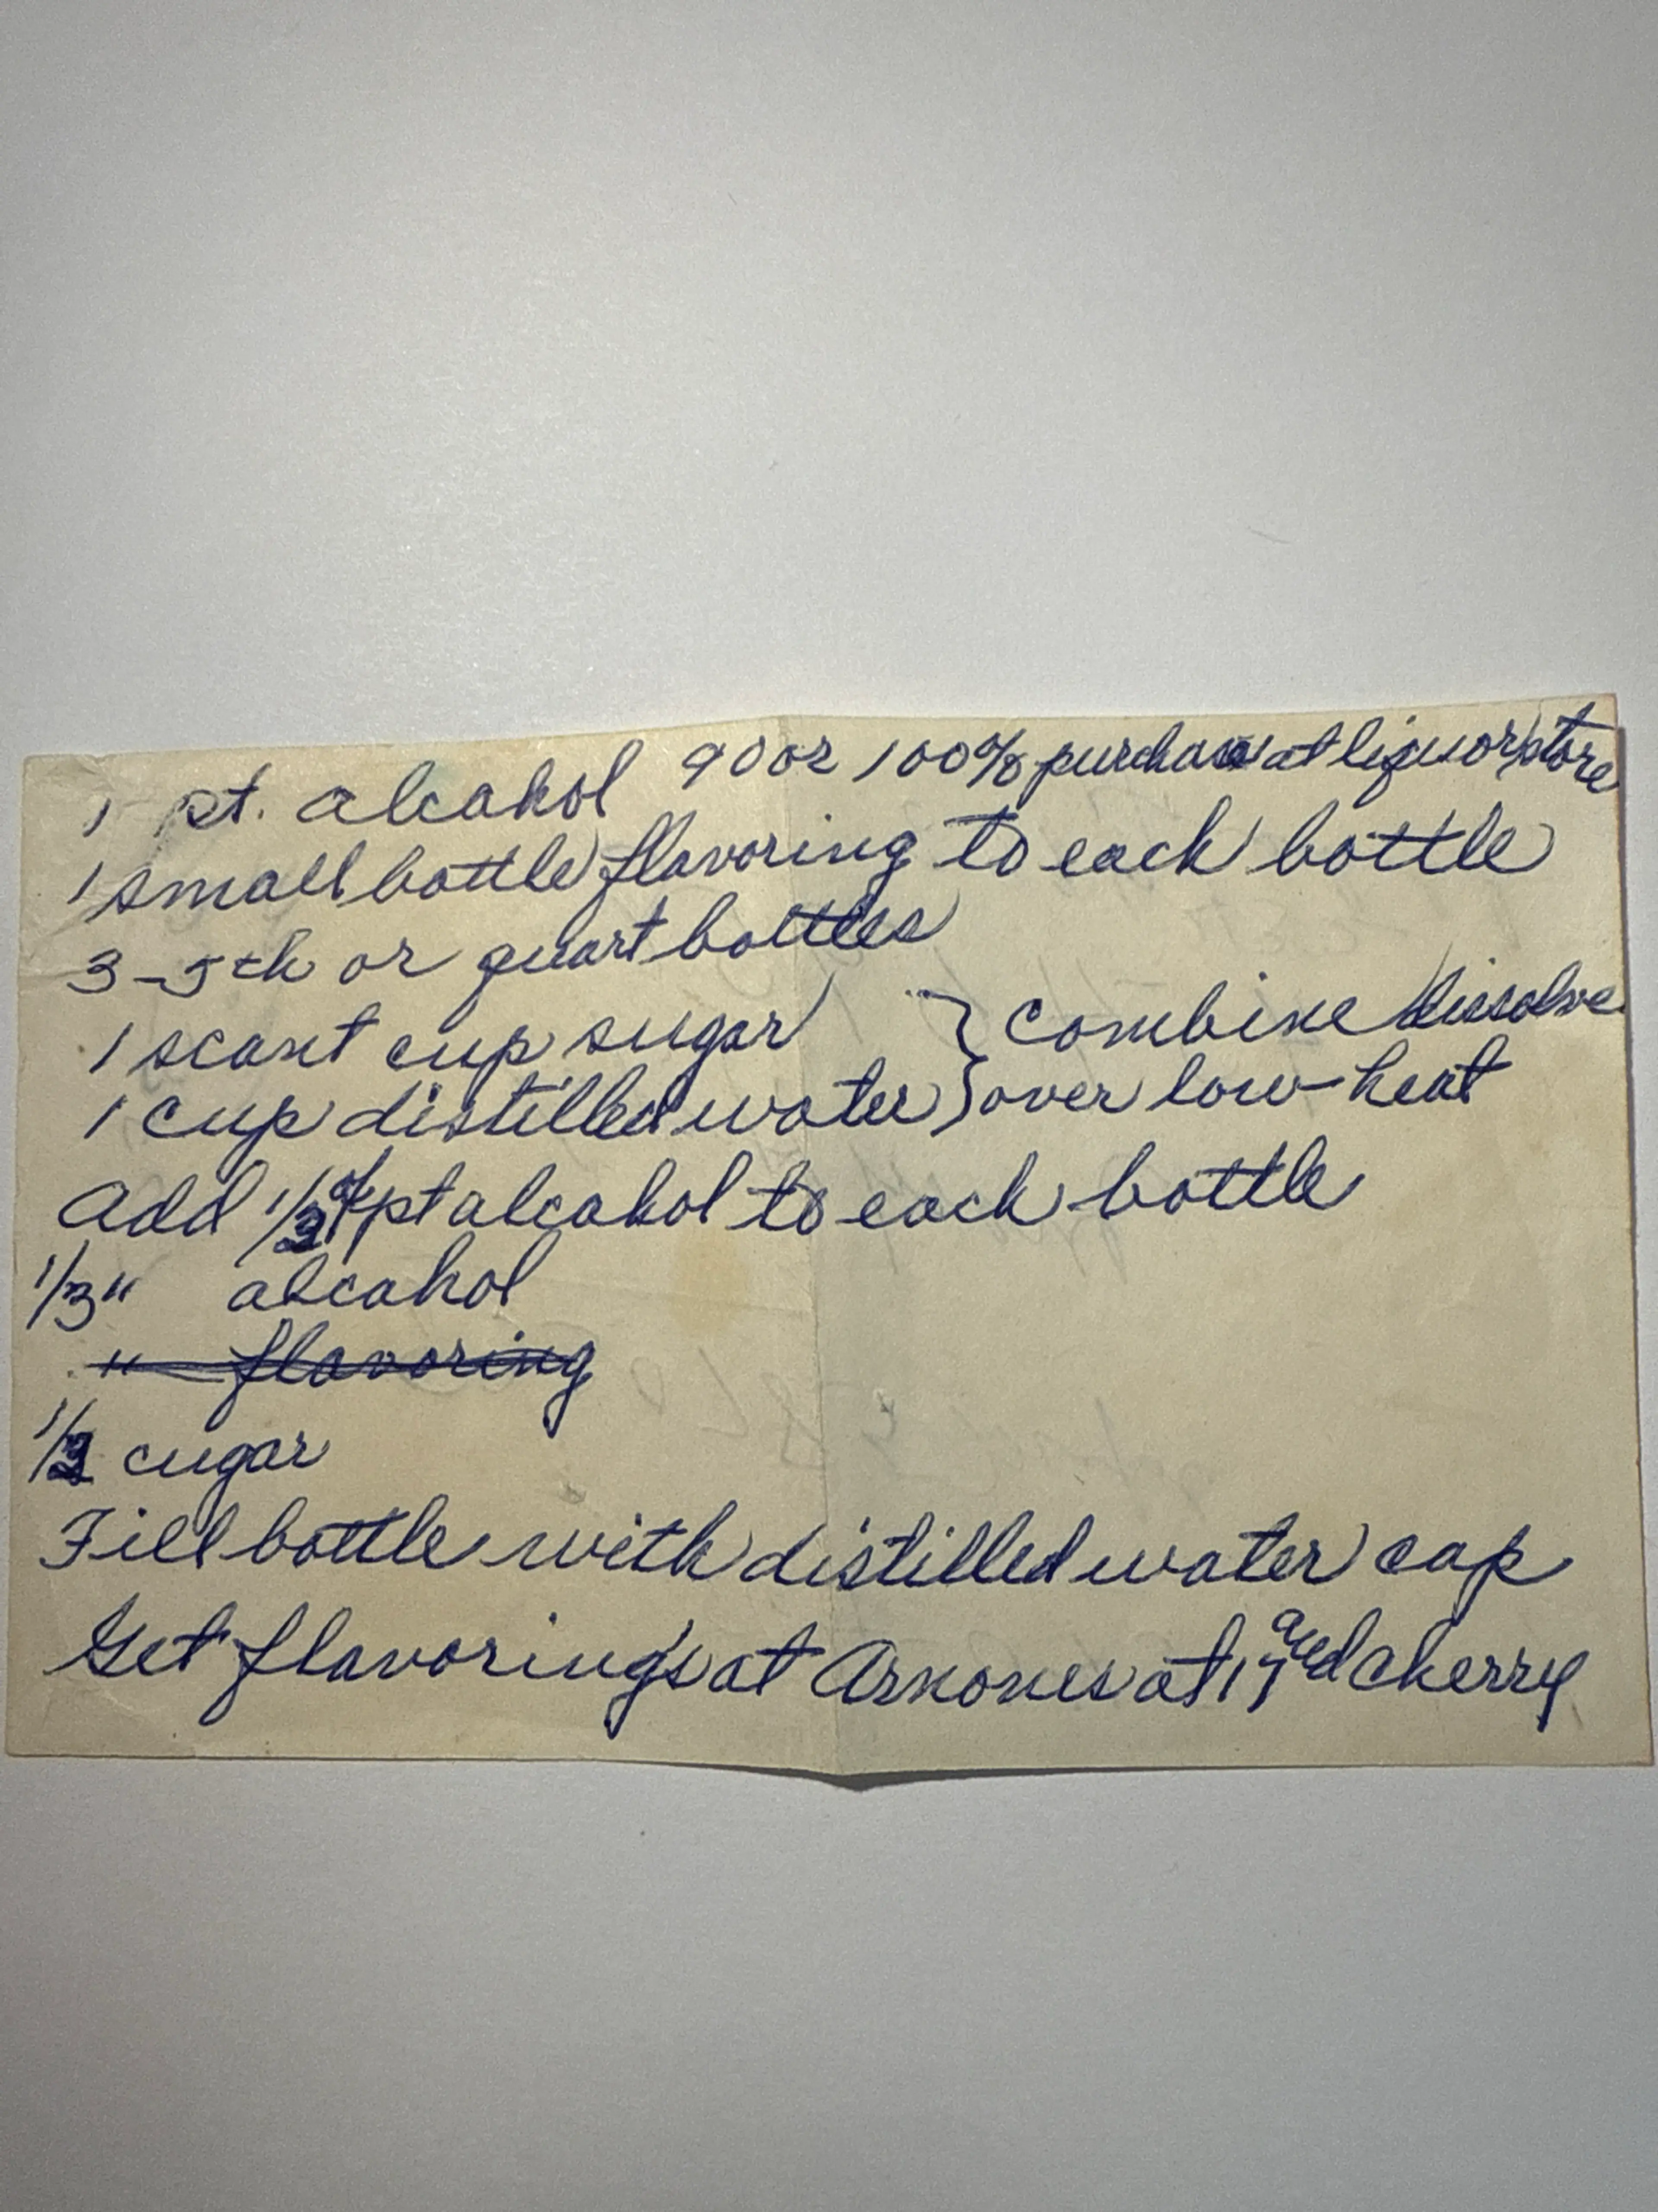 1 pt. alcahol 90 or 100% purchase at liquor store
1 small bottle flavoring to each bottle
3-5th or quart bottles
1 scant cup sugar } combine dissolve
1 cup distilled water } over low heat
Add 1/3 of pt alcahol to each bottle
1/3 " alcahol
" flavoring
1/3 cugar
Fill bottle with distilled water cap
Get flavoring's at Arnones at 17 and cherry